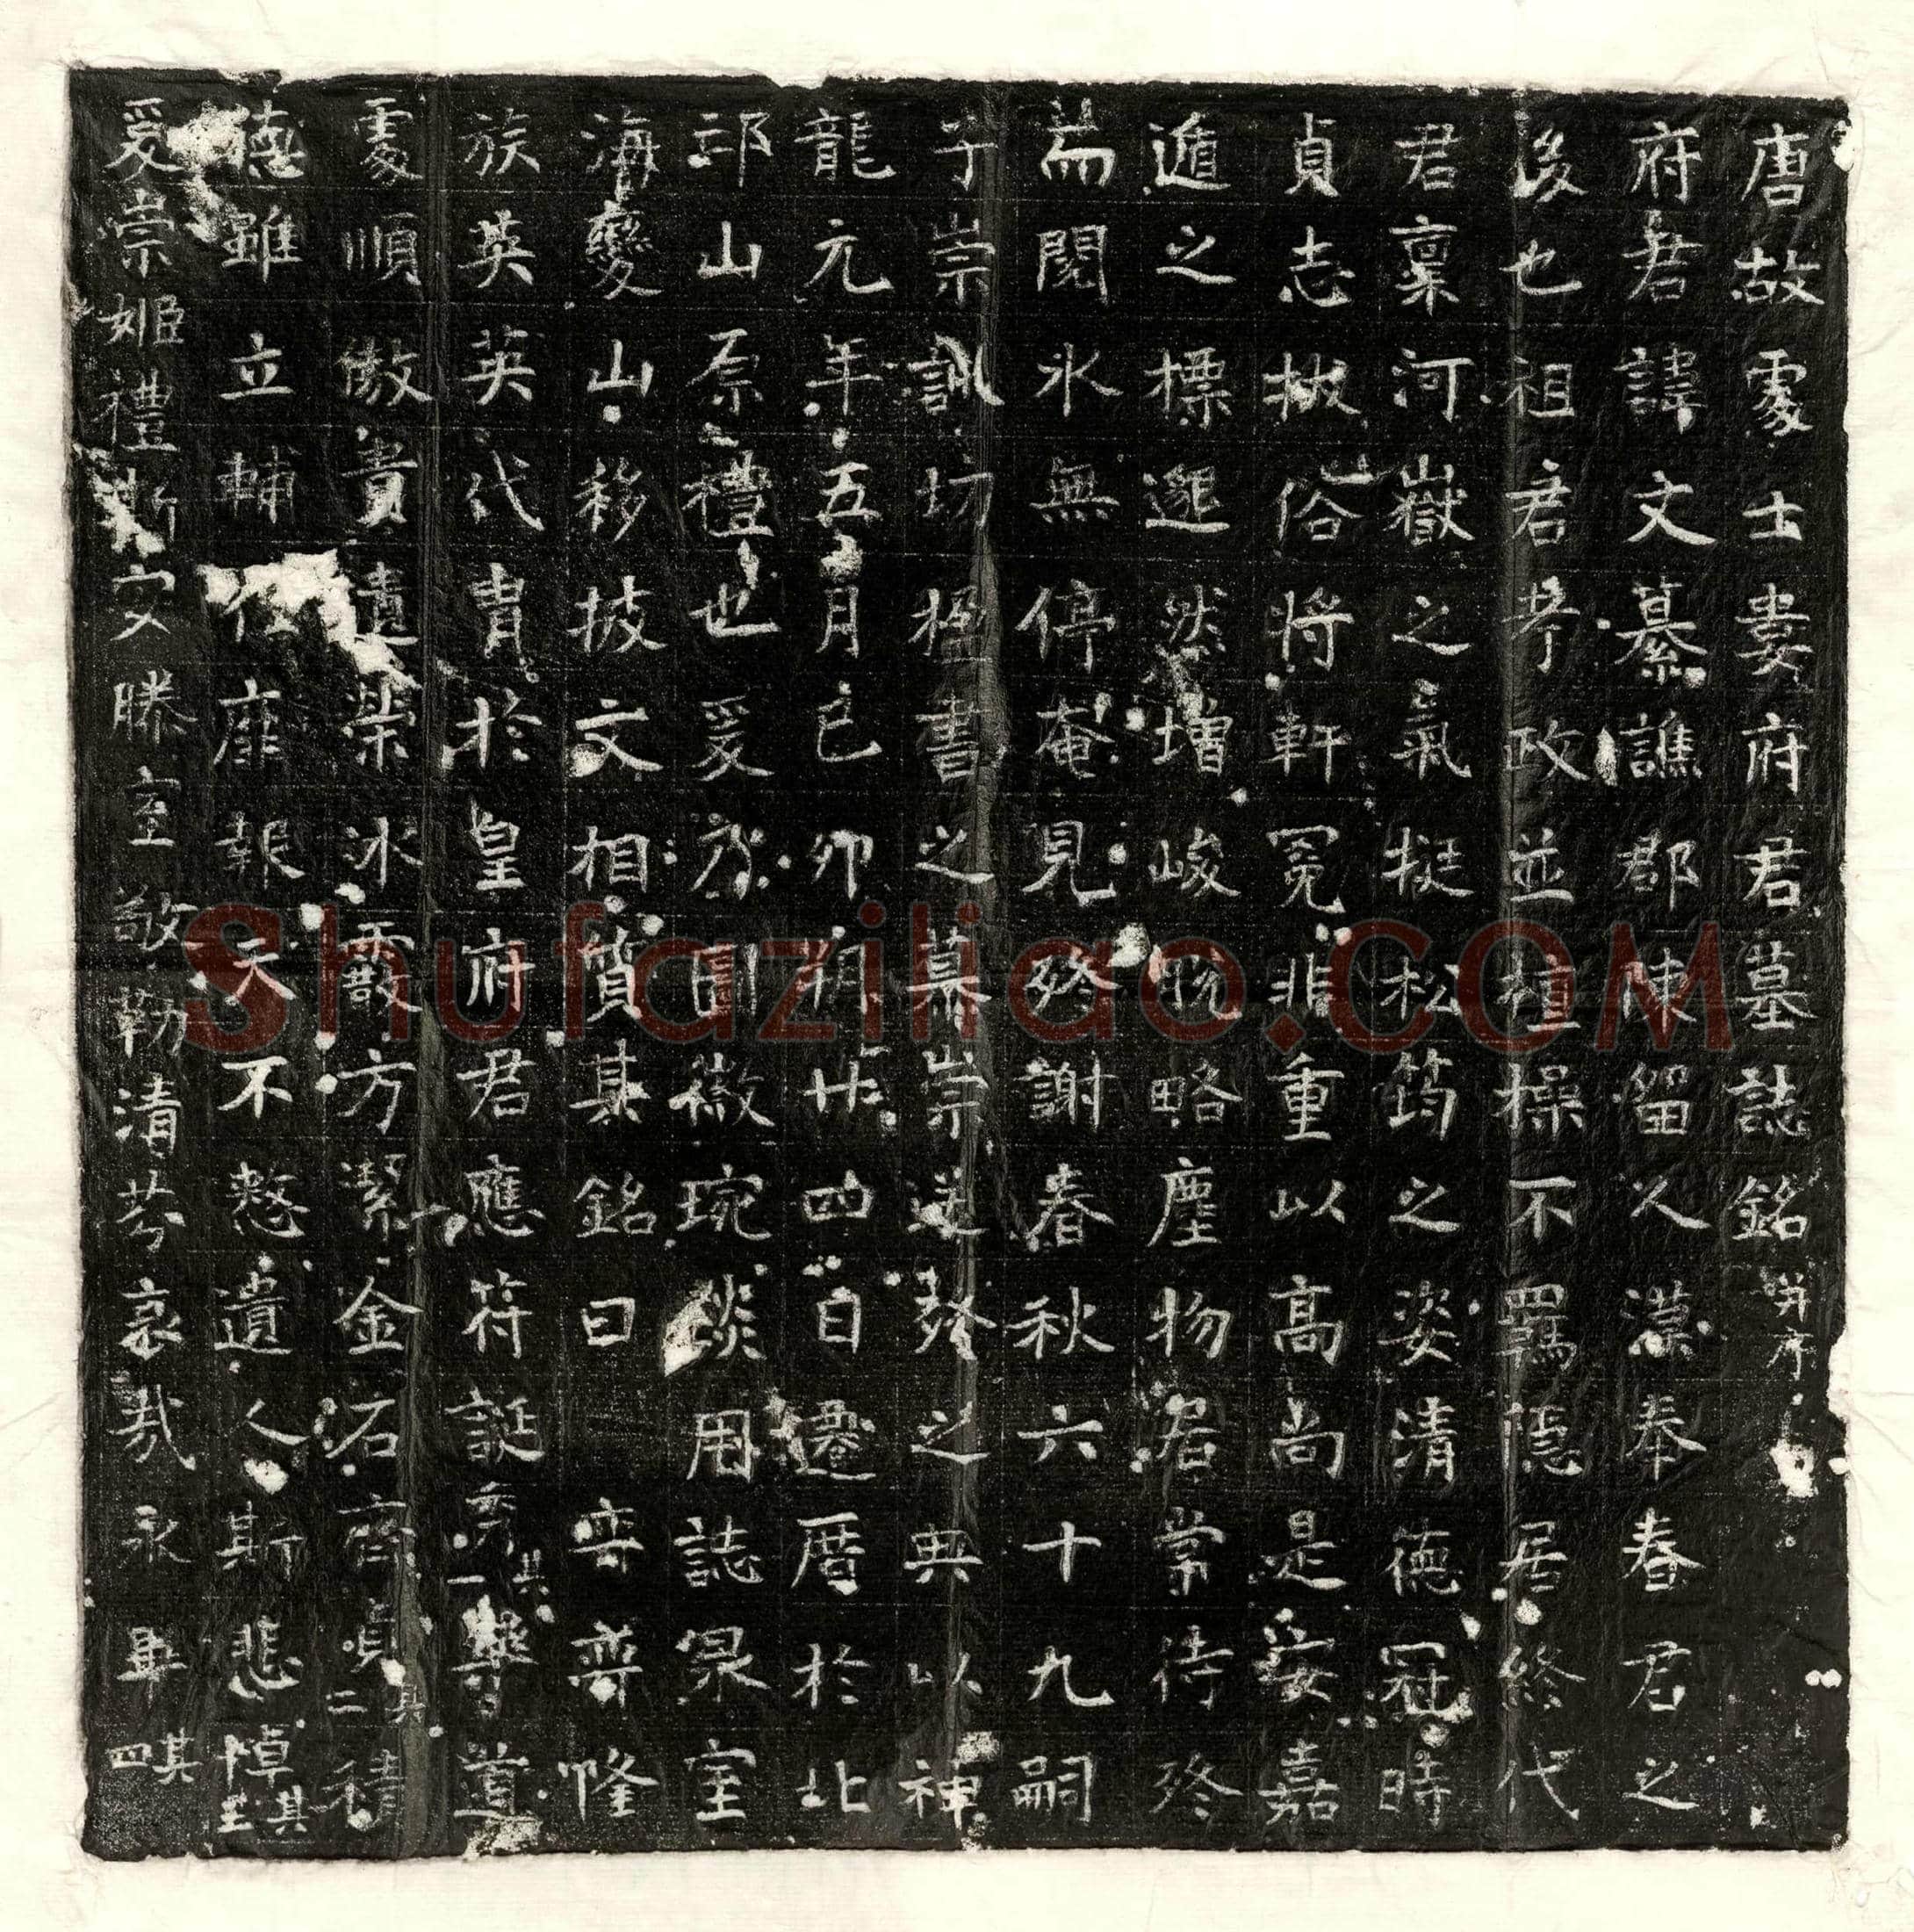 唐故處士婁府君墓誌銘并序
府君諱文纂譙郡陳留人漢奉春君之
後也祖君考政並植操不羈隱居終代
君稟河嶽之氣挺松筠之姿清德冠時
貞志拔俗將軒冕非重以高尚是妥嘉
遁之標邈然增峻晚略塵物居常待終
而閱水無停奄見終謝春秋六十九嗣
子崇誠坊楹書之慕崇送終之典以神
龍元年五月己卯朔廿四日遷厝於北
邙山原禮也爰芳圖徽琬琰用誌泉室
海變山移披文相質其銘曰 弈弈隆
族英英代胄於皇府君應符誕秀其一樂道
處順傲貴遺榮冰霰方潔金石齊貞其二積
德雖立輔仁靡報天不憖遺人斯悲悼其三
爰崇姬禮斯穴滕室敬勒清芬哀哉永畢其四
Shufaziliao.COM